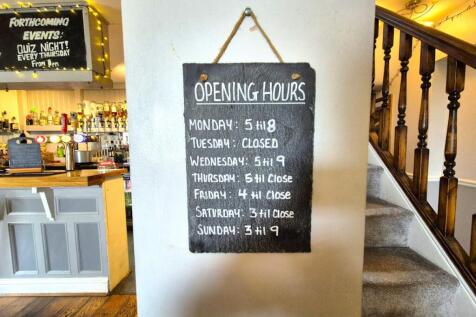 FORTHCOMING
EVENTS:
QUIZ NIGHT!
EVERY THURSDAY
From 8pm
OPENING HOURS
MONDAY: 5 til 8
TUESDAY: CLOSED
WEDNESDAY: 5 til 9
THURSDAY: 5 til Close
FRIDAY: 4 til Close
SATURDAY: 3 til Close
SUNDAY: 3 til 9